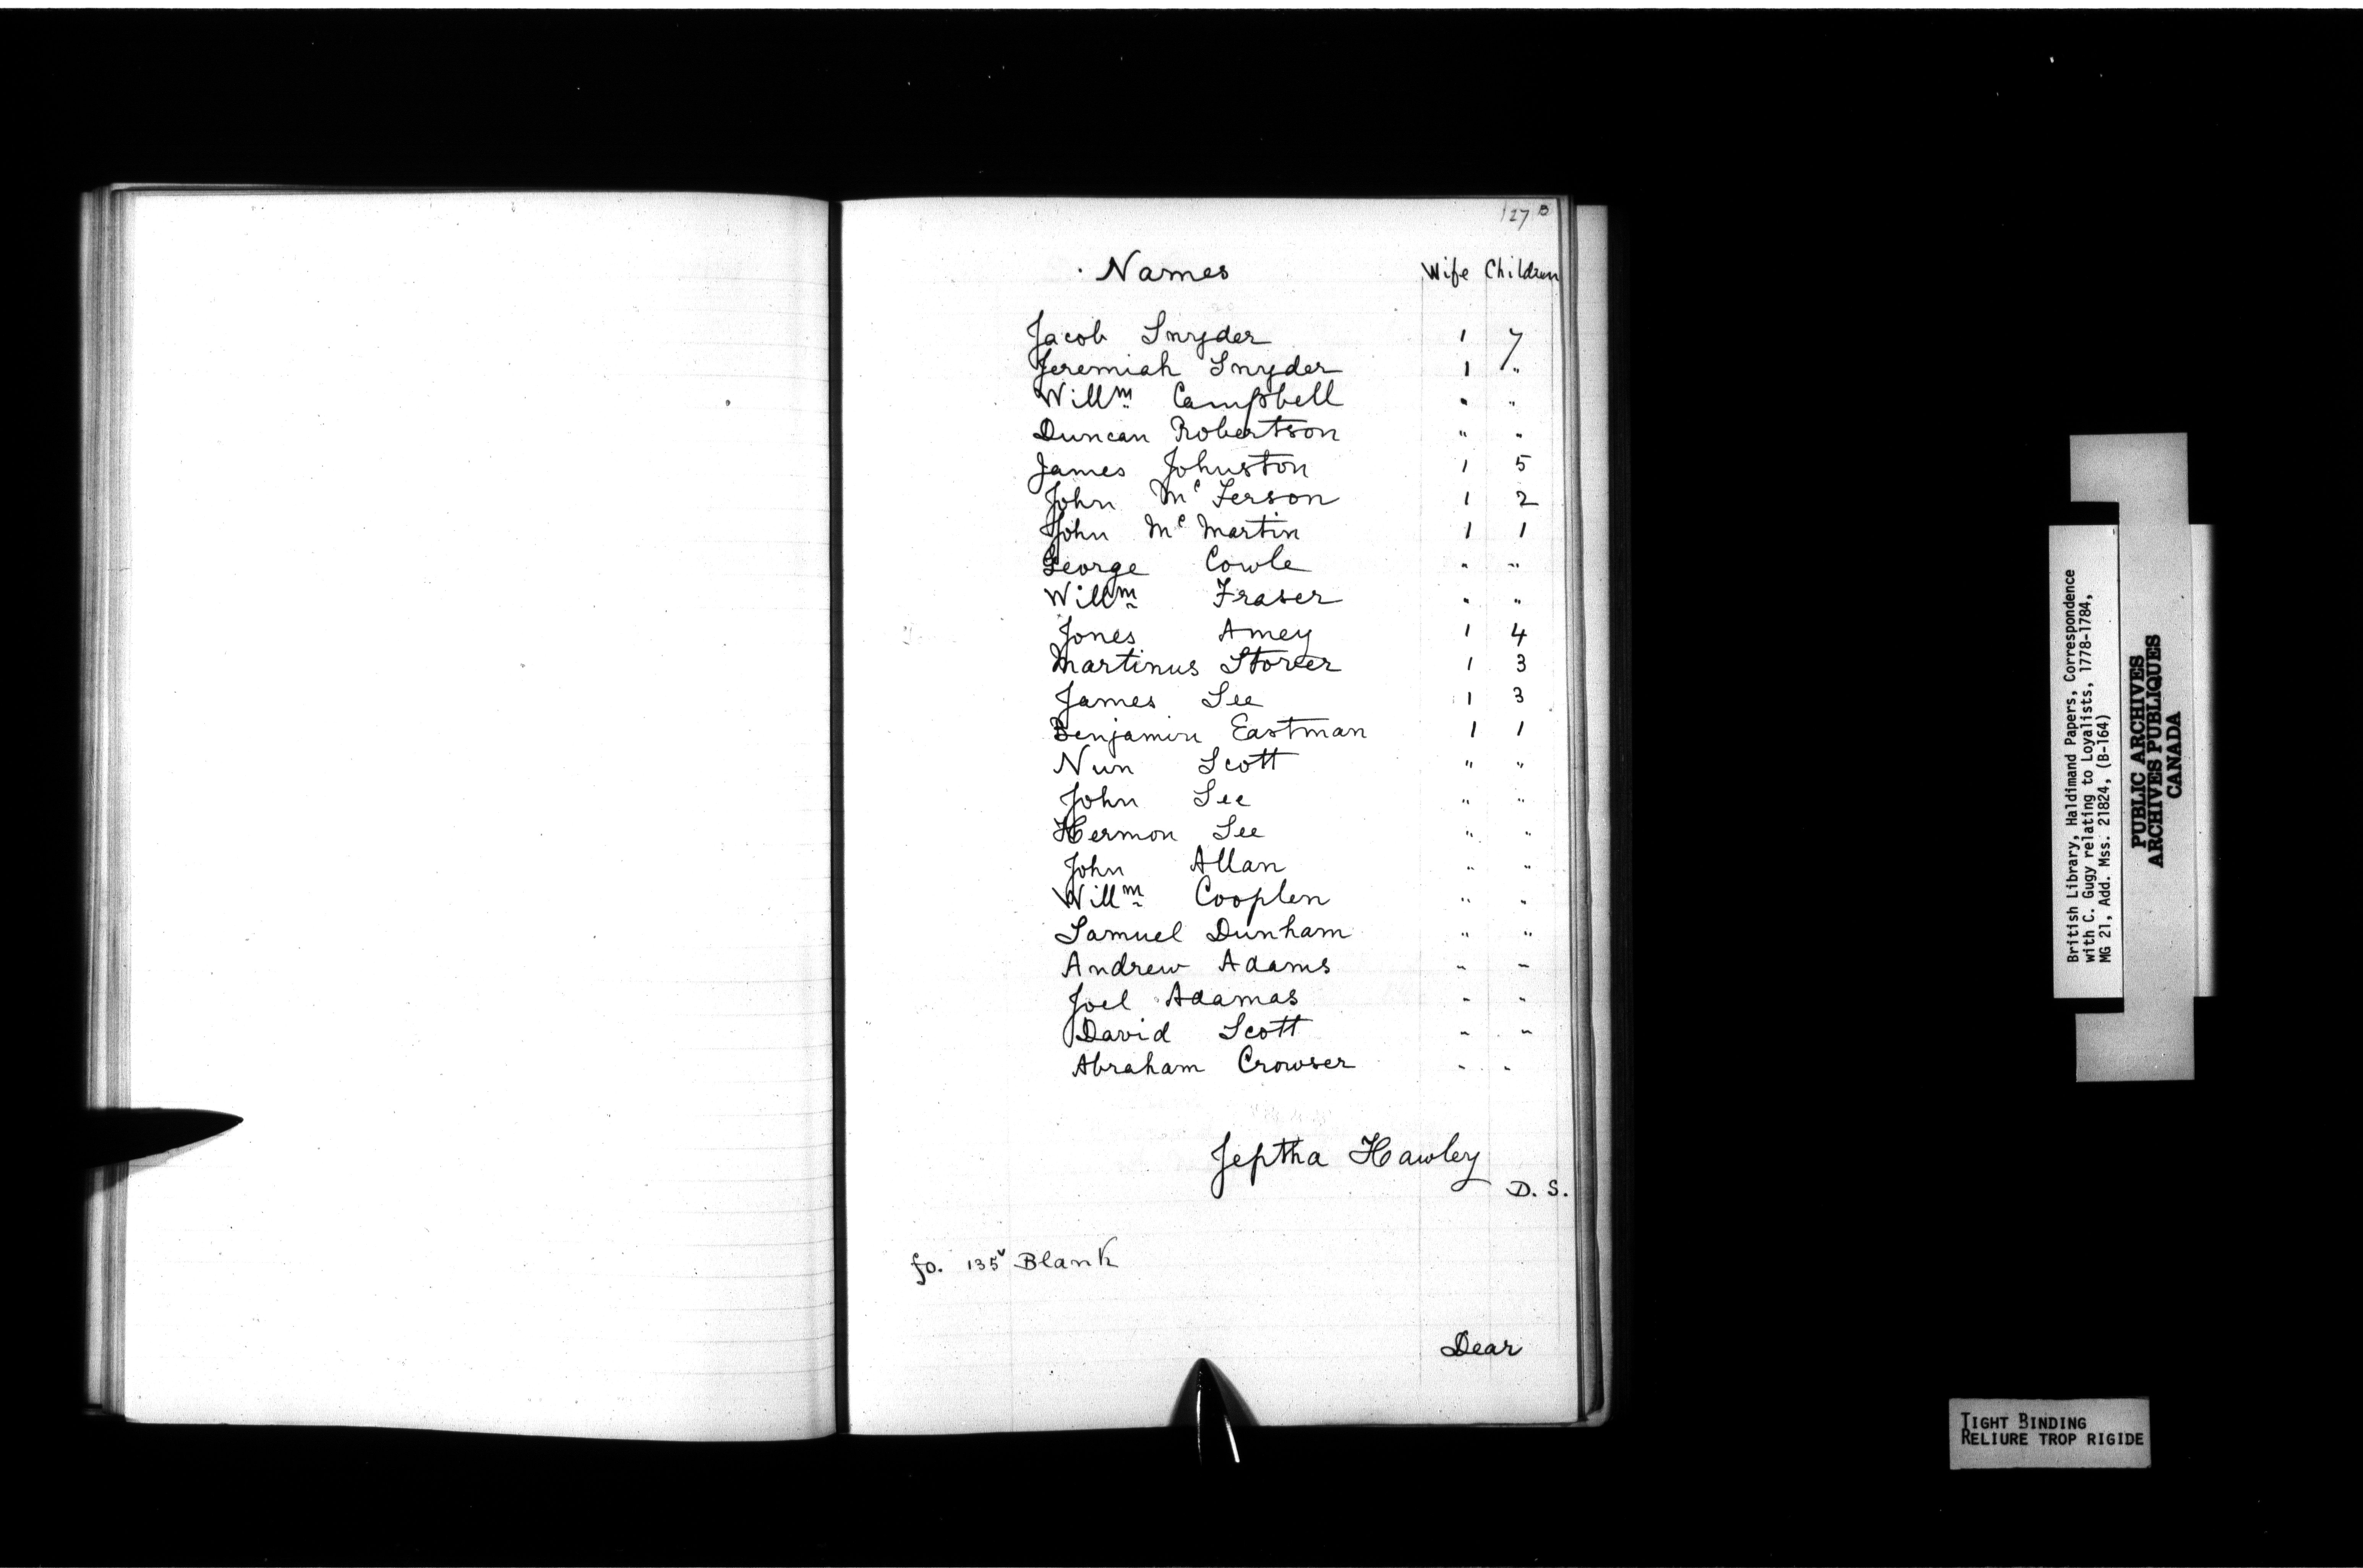 127 B
Names Wife Children
Jacob Snyder 1 7
Jeremiah Snyder 1 "
Will<sup>m</sup> Campbell " "
Duncan Robertson " "
James Johnston 1 5
John M<sup>c</sup> Ferson 1 2
John M<sup>c</sup> Martin 1 1
George Cowle " "
Will<sup>m</sup> Fraser " "
Jones Amey 1 4
Martinus Storer 1 3
James See 1 3
Benjamin Eastman 1 1
Nun Scott " "
John See " "
Hermon See " "
John Allan " "
Will<sup>m</sup> Cooplen " "
Samuel Dunham " "
Andrew Adams " "
Joel Adamas " "
David Scott " "
Abraham Crowser " "
Jeptha Hawley
D. S.
fo. 135<sup>v</sup> Blank
Dear
British Library, Haldimand Papers, Correspondence
with C. Gugy relating to Loyalists, 1778-1784,
MG 21, Add. Mss. 21824, (B-164)
PUBLIC ARCHIVES
ARCHIVES PUBLIQUES
CANADA
TIGHT BINDING
RELIURE TROP RIGIDE